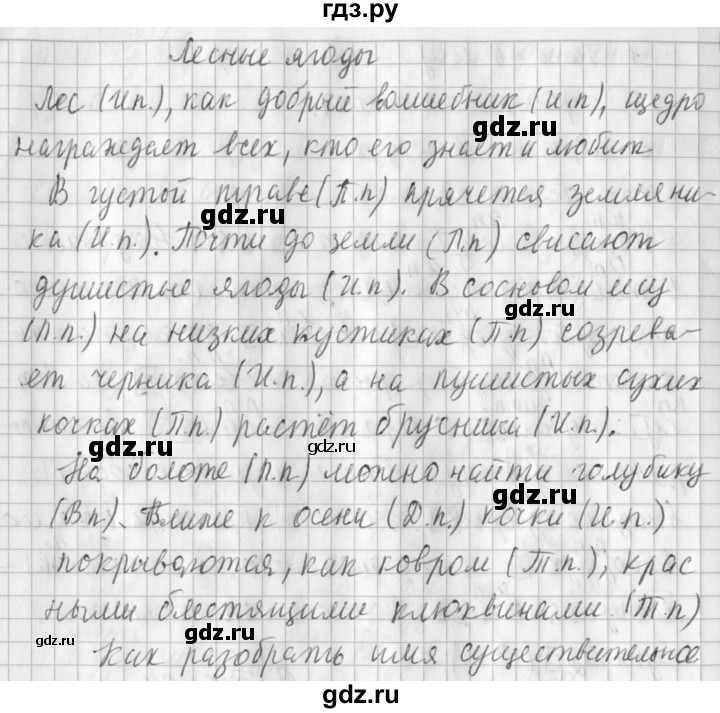 гдз.ру
Лесные ягоды
Лес (И.п.), как добрый волшебник (И.п), щедро
gdz.ru
награждает всех, кто его знает и любит
В густой траве (П.п) прячется земляни-
gdz.ru
ка (И.п.). Почти до земли (П.п) свисают
душистые ягоды (И.п). В сосновом лесу
gdz.ru
(П.п.) на низких кустиках (П.п) созрева-
ет черника (И.п.), а на пушистых сухих
кочках (П.п.) растёт брусника (И.п.).
gdz.ru
На болоте (П.п) можно найти голубику
gdz.ru
(В.п). Ближе к осени (Д.п.) кочки (И.п.)
покрываются, как ковром (Т.п.), крас
ными блестящими клюквинами (Т.п)
gdz.ru gdz.ru
Как разобрать имя существительное
gdz.ru